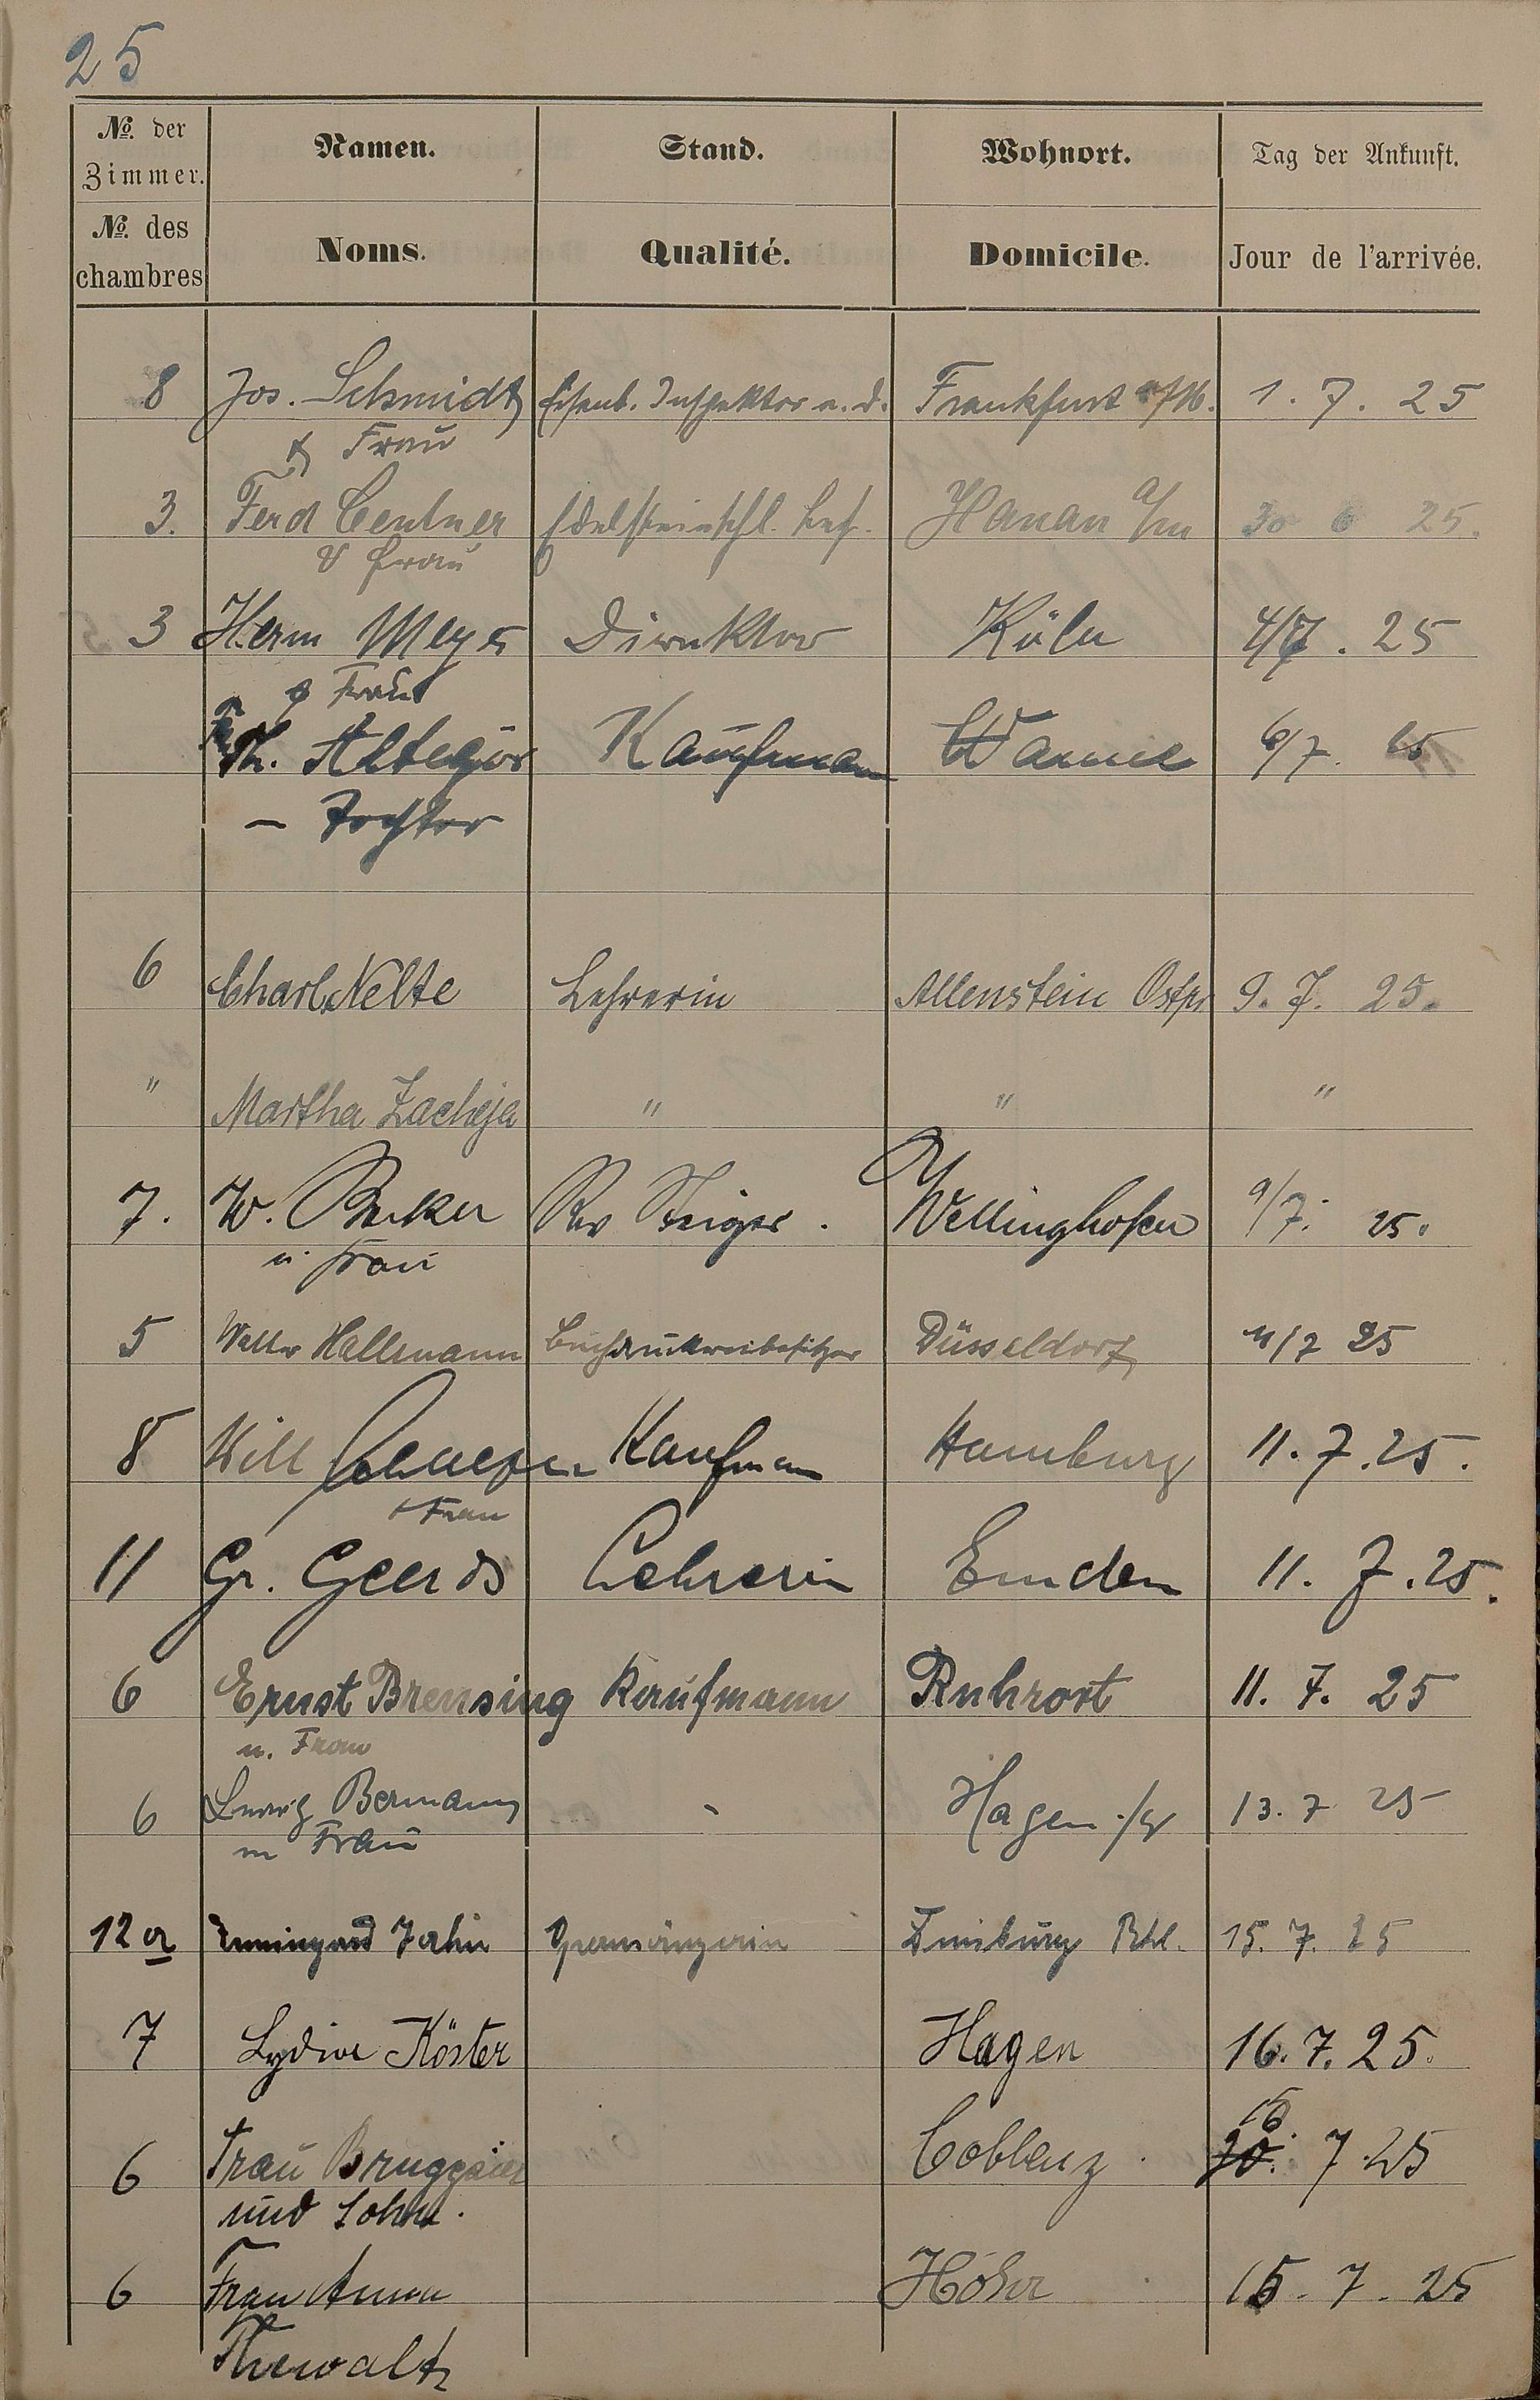 25
No. der Zimmer. Namen. Stand. Wohnort. Tag der Ankunft.
No. des chambres Noms. Qualité. Domicile. Jour de l'arrivée.
8 Jos. Schmidt Eisenb. Inspektor a. d. Frankfurt a/M. 1. 7. 25
& Frau
3. Ferd Centner Edelsteinschl. Bes. Hanau a/m 30 6 25.
& Frau
3 Herm Meyer Direktor Köln 4/7. 25
& Frau
Kaufmann Wanne 6/7. 25
- Tochter
6 Charl. Nelte Lehrerin Allenstein Ostpr 9. 7. 25.
" Martha Zacheja " " "
7. W. Becker Rev Steiger. Wellinghofen 9/7. 25.
u. Frau
5 Walter Hallmann Buchdruckereibesitzer Düsseldorf 11/7 25
8 Will Kaufmann Hamburg 11. 7. 25.
+ Frau
11 Gr. Geerds Lehrerin Emden 11. 7. 25.
6 Ernst Brensing Kaufmann Ruhrort 11. 7. 25
u. Frau
6 Ludwig Bermann - Hagen i/W 13. 7 25
m Frau
12a Jahn Duisburg Rhl. 15. 7. 25
7 Lydia Köster Hagen 16. 7. 25.
6 Frau Bruggaier Coblenz. 16. 7. 25
und Sohn.
6 Frau Anna Höhr 15. 7. 25
Thewalt